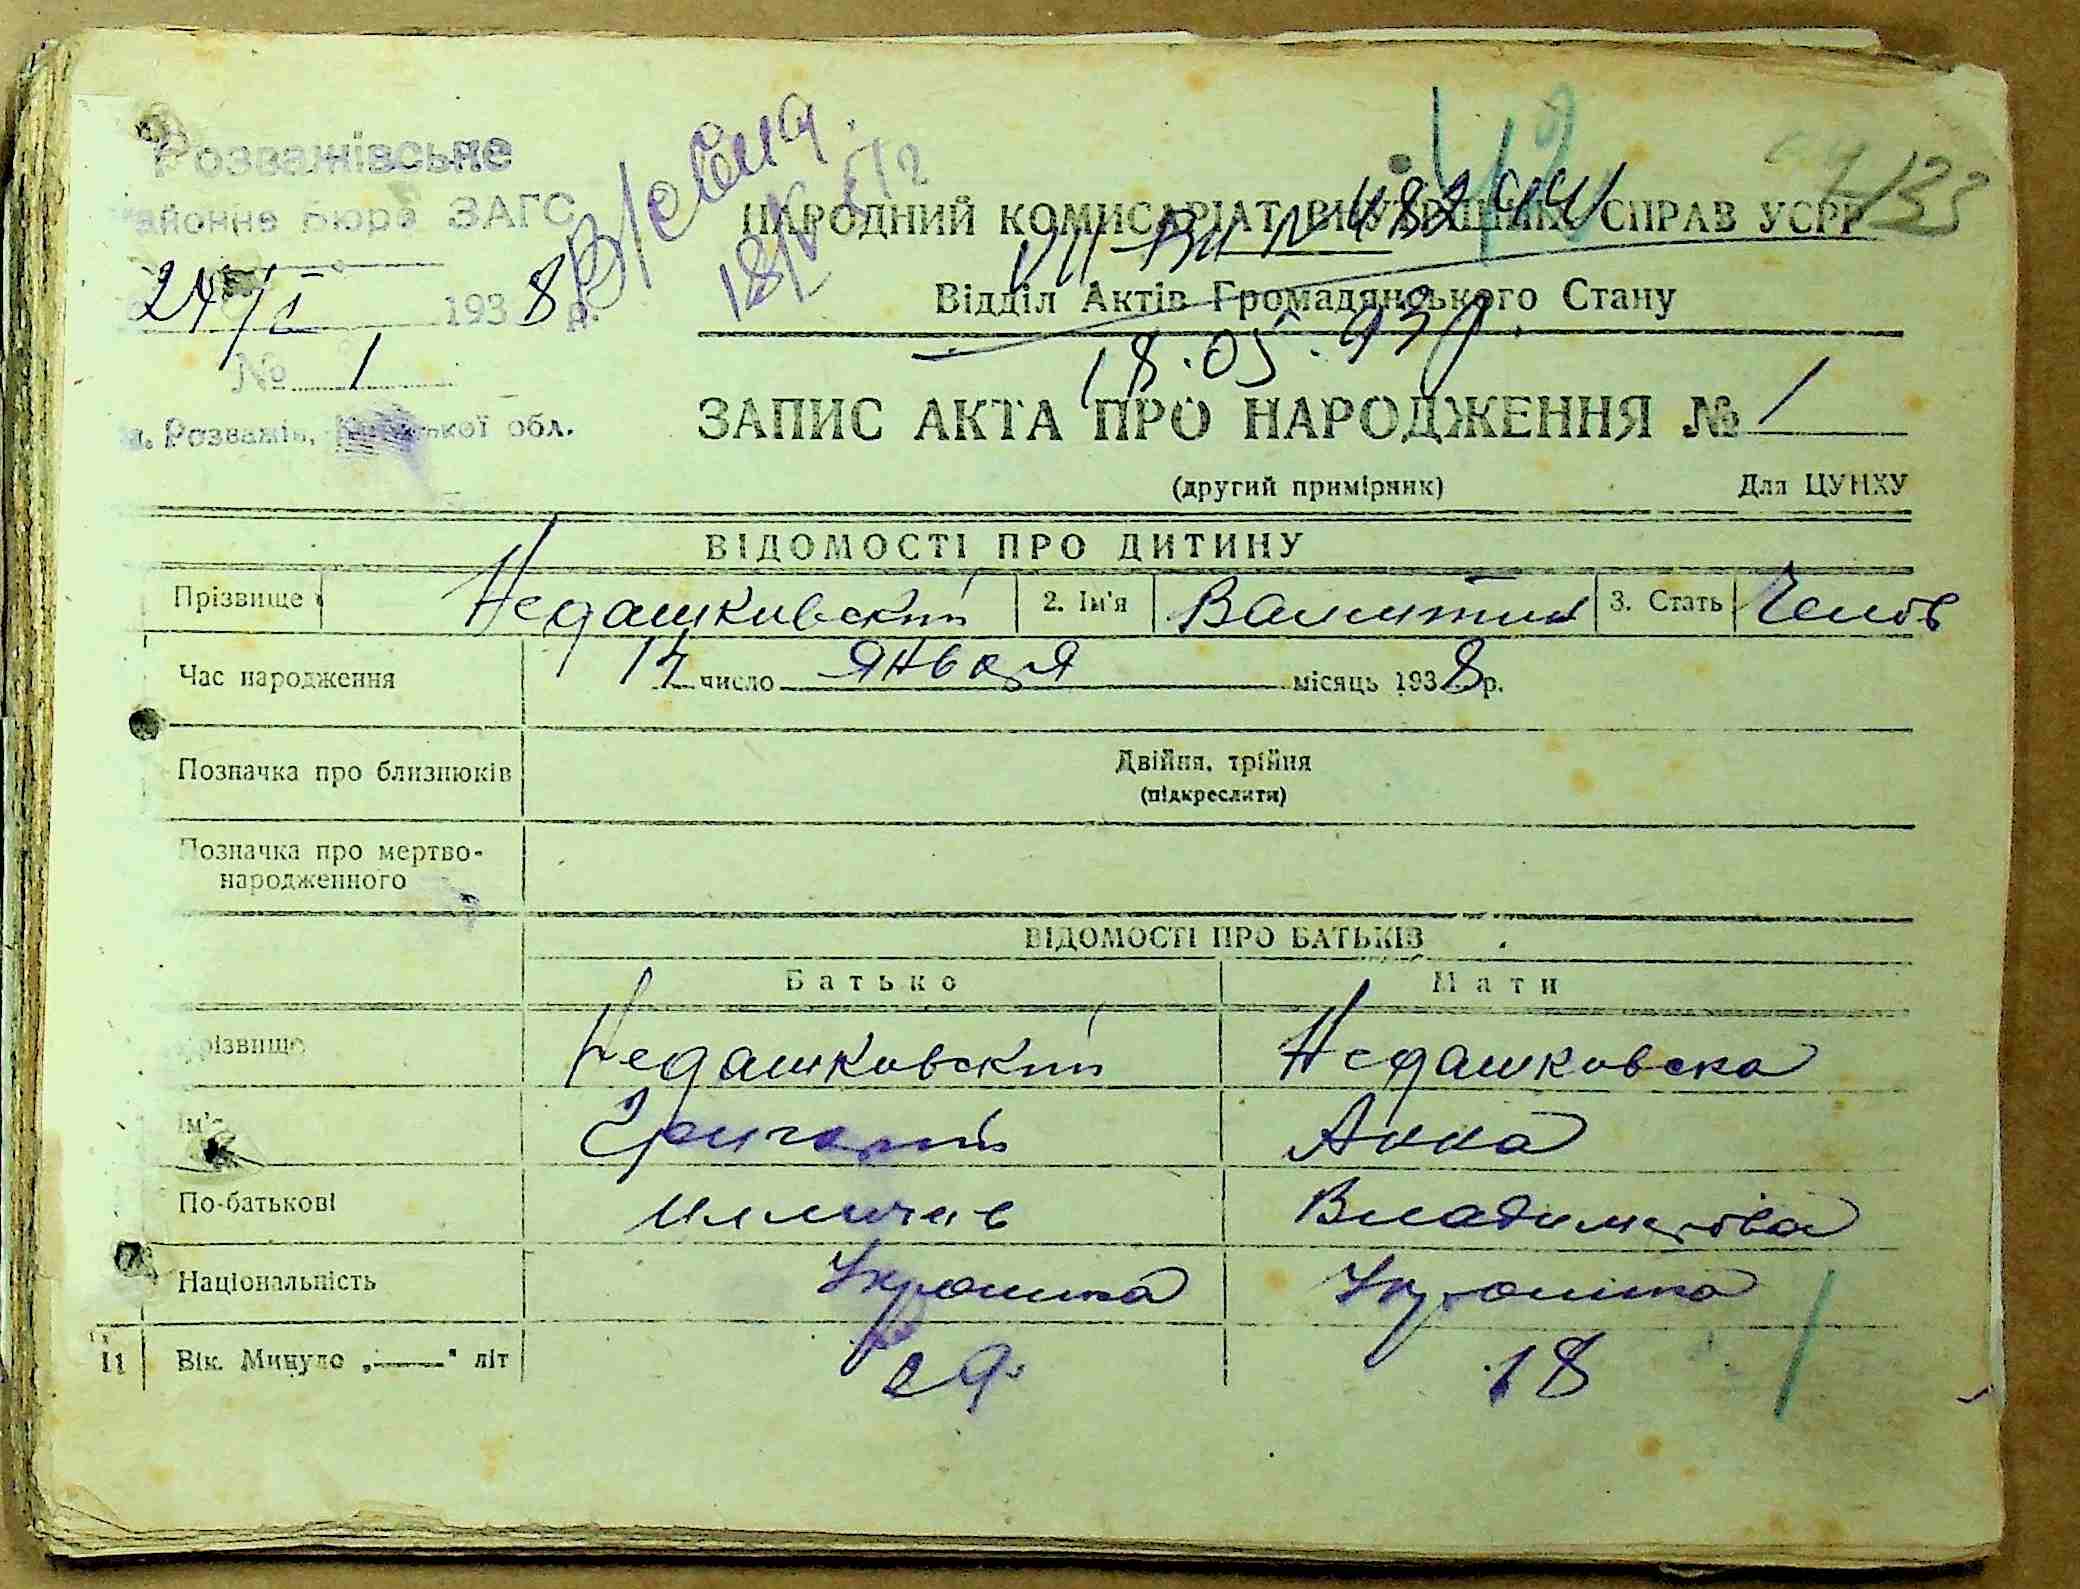 Розважівське
районне Бюро ЗАГС
24/I 1938 р.
№ 1
м. Розважів, обл.
18/V
НАРОДНИЙ КОМИСАРІАТ ВНУТРІШНІХ СПРАВ УСРР
Відділ Актів Громадянського Стану
18.05.93
ЗАПИС АКТА ПРО НАРОДЖЕННЯ № 1
(другий примірник) Для ЦУНХУ
ВІДОМОСТІ ПРО ДИТИНУ
Прізвище Недашковский 2. Ім'я Валентин 3. Стать Челов
Час народження 14 число января місяць 1938 р.
Позначка про близнюків Двійня, трійня
(підкреслити)
Позначка про мертво-
народженного
ВІДОМОСТІ ПРО БАТЬКІВ
Батько Мати
Прізвище Недашковский Недашковска
Ім'я Григорий Анна
По-батькові Владимирова
Національність Украинка Украинка
11 Вік. Минуло „——" літ 29 18